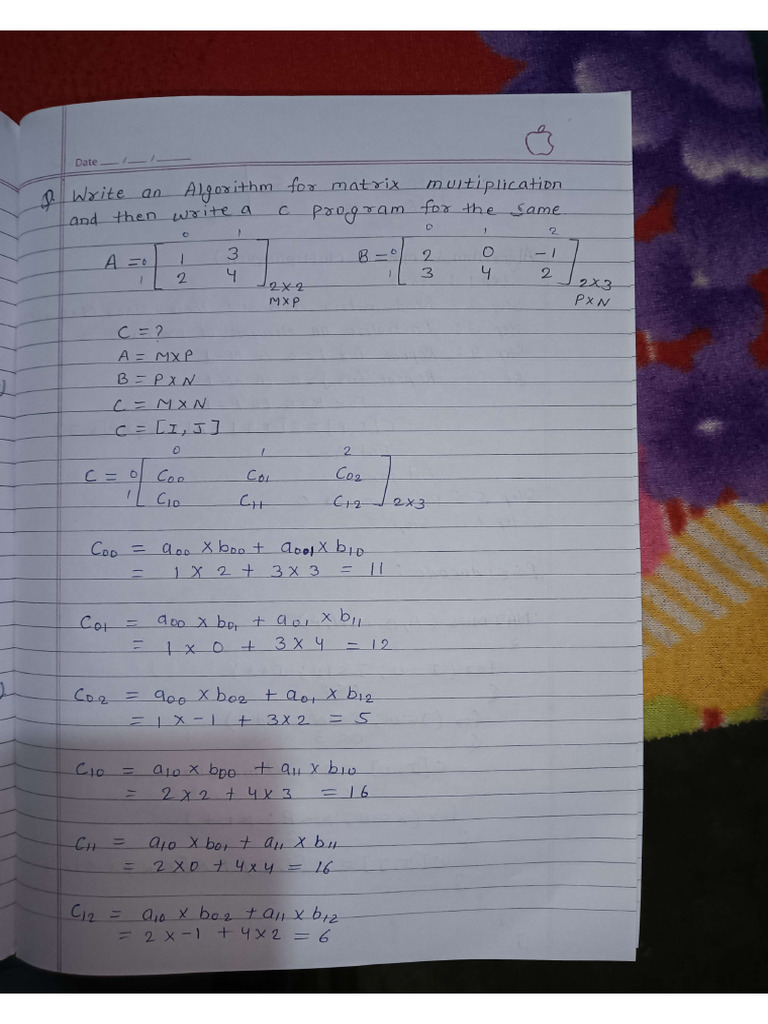 Date __/__/____
Q. Write an Algorithm for matrix multiplication
and then write a C program for the same
0 1 0 1 2
A = 0 [ 1 3 B = 0 [ 2 0 -1
1 2 4 ] 2x2 1 3 4 2 ] 2x3
MxP PxN
C = ?
A = MxP
B = PxN
C = MxN
C = [I, J]
0 1 2
C = 0 [ C00 C01 C02
1 C10 C11 C12 ] 2x3
C00 = a00 x b00 + a001 x b10
= 1 x 2 + 3 x 3 = 11
C01 = a00 x b01 + a01 x b11
= 1 x 0 + 3 x 4 = 12
C02 = a00 x b02 + a01 x b12
= 1 x -1 + 3x2 = 5
C10 = a10 x b00 + a11 x b10
= 2x2 + 4x3 = 16
C11 = a10 x b01 + a11 x b11
= 2x0 + 4x4 = 16
C12 = a10 x b02 + a11 x b12
= 2x-1 + 4x2 = 6